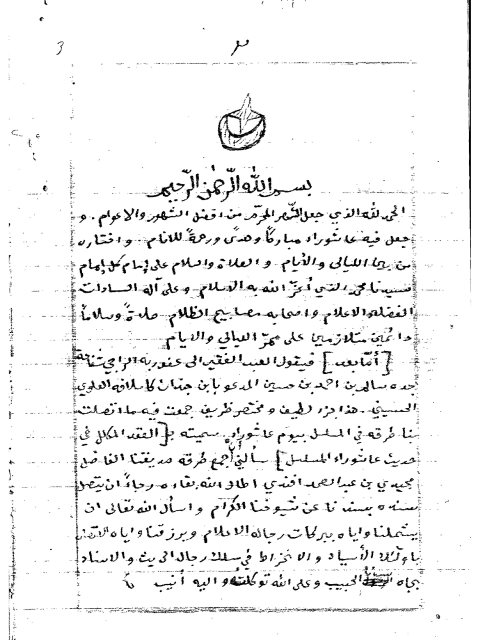 3
٣
بسم الله الرحمن الرحيم
الحمد لله الذي جعل الشهر المحرم من افضل الشهور والاعوام . و
جعل فيه عاشوراء مباركاً وهدىً ورحمةً للانام واختاره
من بين الليالي والأيام و الصلاة والسلام على إمام كل إمام
سيدنا محمد الذي أعزّ الله به الاسلام وعلى آله السادات
الفضلاء الاعلام واصحابه مصابيح الظلام صلاةً وسلاماً
دائمين متلازمين على ممرّ الليالي والايام
[أمّا بعد] فيقول العبد الفقير الى عفو ربه الراجي شفاعة
جده سالم بن احمد بن حسين المدعو بابن جندان كاسلافه العلوي
الحسيني . هذا جزء لطيف و مختصر ظريف جمعت فيه ما اتصلت
بنا طرقه في المسلسل بيوم عاشوراء سميته بـ [العقد المكلل في
حديث عاشوراء المسلسل] سألني أجمع طرقه صديقنا الفاضل
مجيدي بن عبد الصمد افندي اطال الله بقاءه رجاءً ان يتصل
سنده بسندنا عن شيوخنا الكرام و اسأل الله تعالى ان
يشملنا واياه ببركات رجاله الاعلام ويرزقنا واياه الاتصال
باولئك الأسياد و الانخراط في سلك رجال الحديث والاسناد
بجاه الحبيب وعلى الله توكلت واليه أنيب